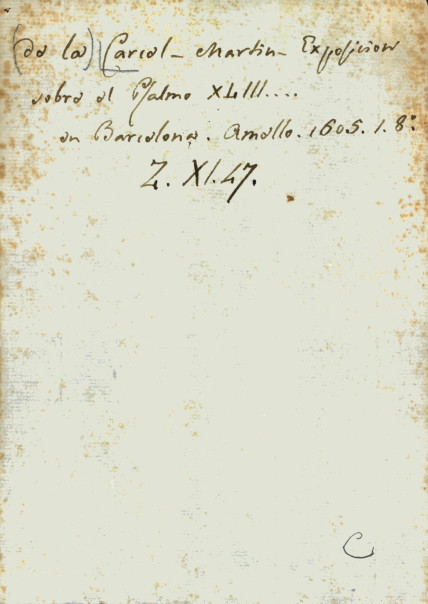 (de la) Carcel - Martin - Exposicion
sobre el Psalmo XLIII....
en Barcelona. Amello. 1605. 1. 8º
Z. XI. 47.
C